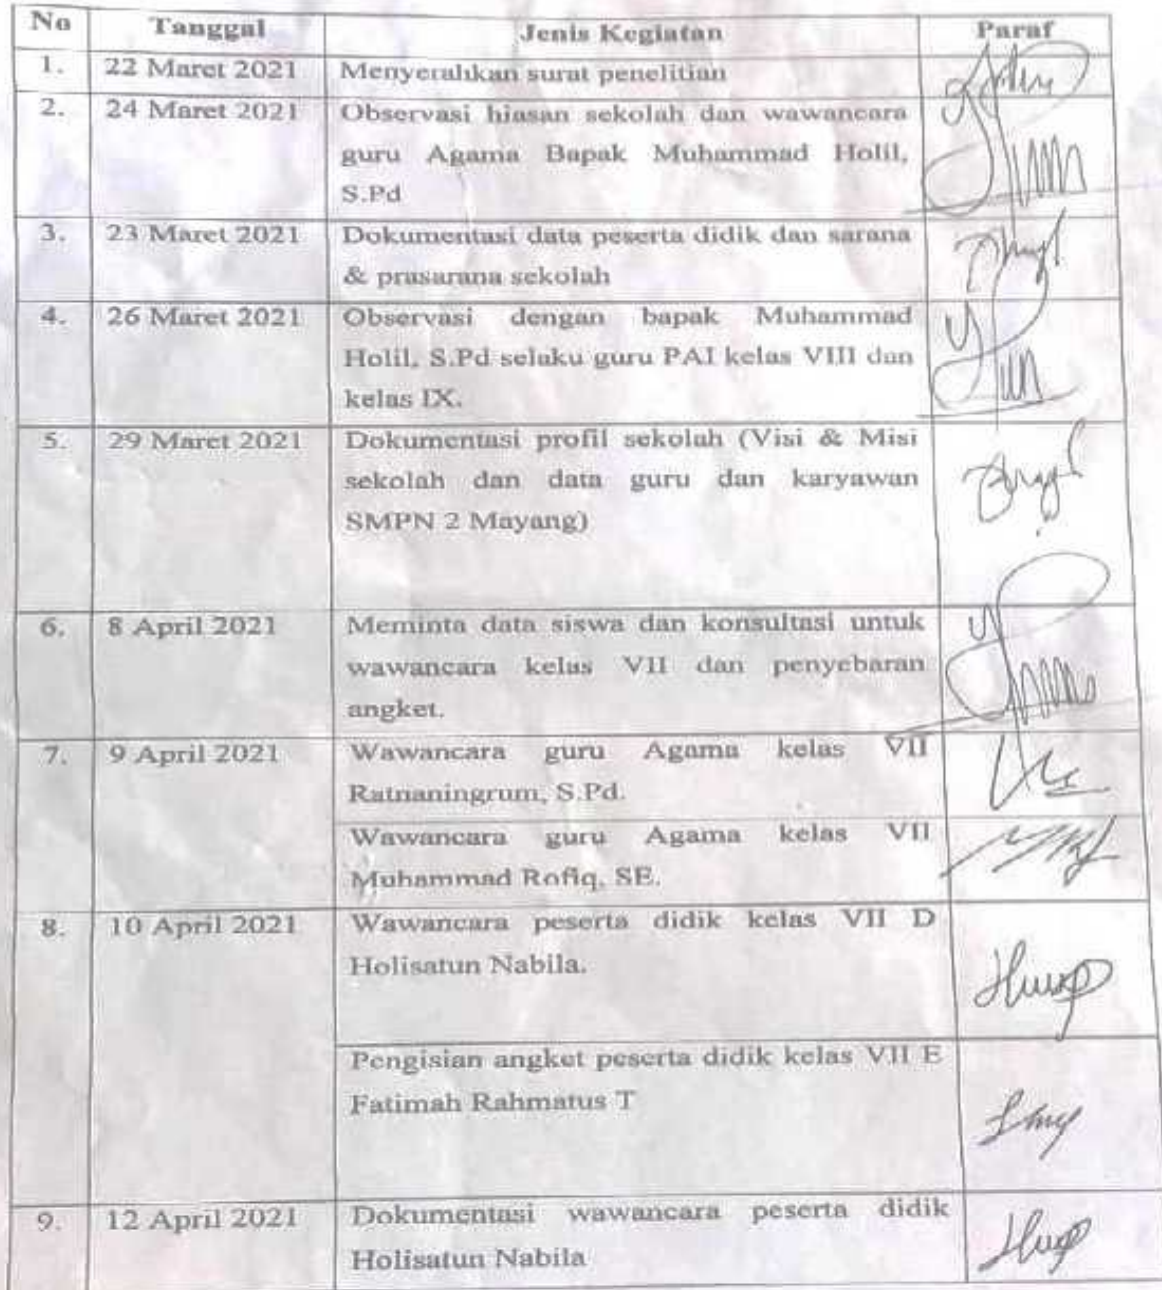 No Tanggal Jenis Kegiatan Paraf
1. 22 Maret 2021 Menyerahkan surat penelitian
2. 24 Maret 2021 Observasi hiasan sekolah dan wawancara
guru Agama Bapak Muhammad Holil,
S.Pd
3. 23 Maret 2021 Dokumentasi data peserta didik dan sarana
& prasarana sekolah
4. 26 Maret 2021 Observasi dengan bapak Muhammad
Holil, S.Pd selaku guru PAI kelas VIII dan
kelas IX.
5. 29 Maret 2021 Dokumentasi profil sekolah (Visi & Misi
sekolah dan data guru dan karyawan
SMPN 2 Mayang)
6. 8 April 2021 Meminta data siswa dan konsultasi untuk
wawancara kelas VII dan penyebaran
angket.
7. 9 April 2021 Wawancara guru Agama kelas VII
Ratnaningrum, S.Pd.
Wawancara guru Agama kelas VII
Muhammad Rofiq, SE.
8. 10 April 2021 Wawancara peserta didik kelas VII D
Holisatun Nabila.
Pengisian angket peserta didik kelas VII E
Fatimah Rahmatus T
9. 12 April 2021 Dokumentasi wawancara peserta didik
Holisatun Nabila